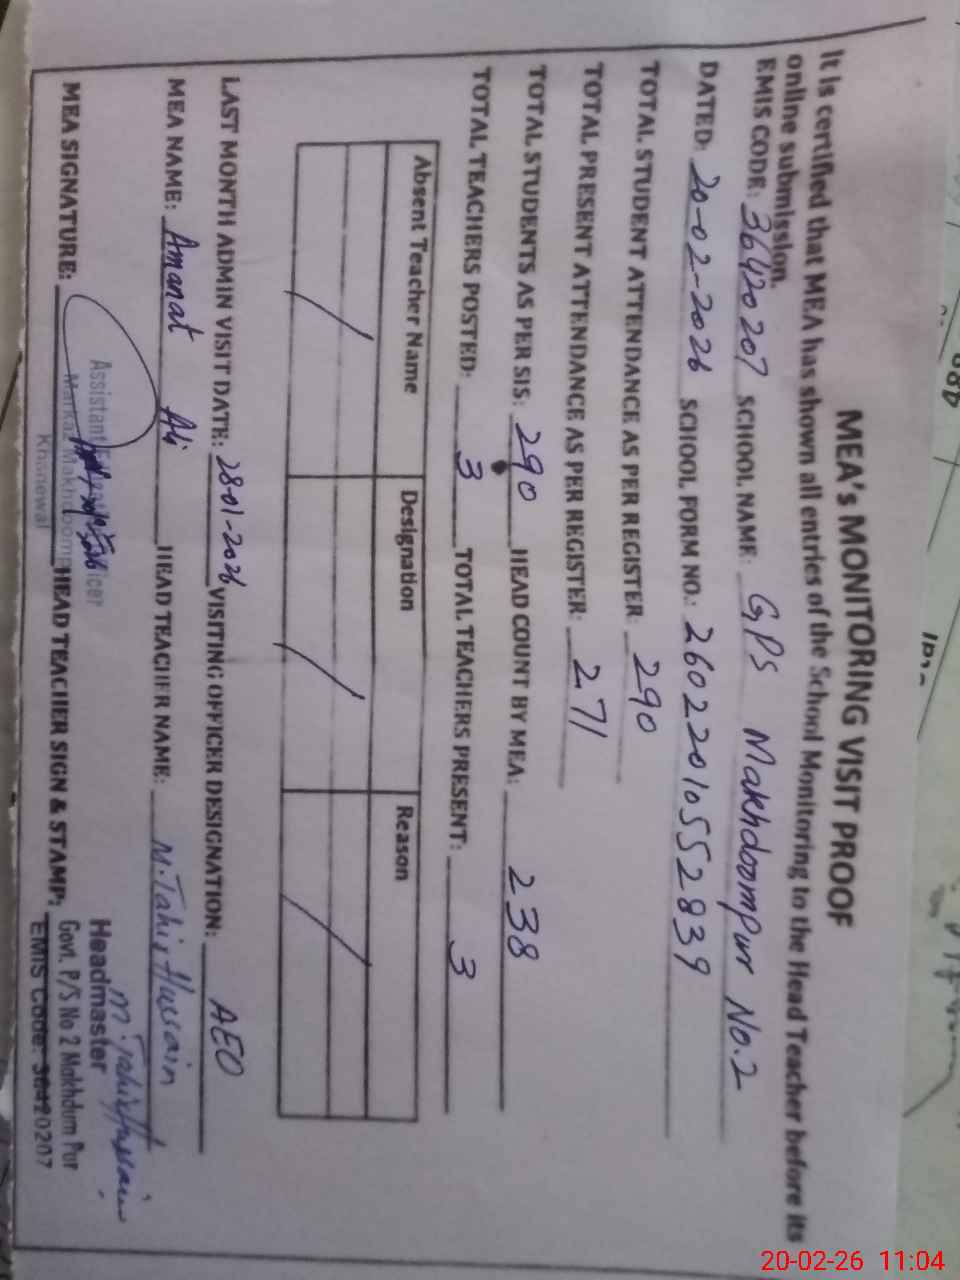 MEA's MONITORING VISIT PROOF
It is certified that MEA has shown all entries of the School Monitoring to the Head Teacher before its
online submission.
EMIS CODE: 36420207 SCHOOL NAME: GPS Makhdoompur No.2
DATED: 20-02-2026 SCHOOL FORM NO.: 26022010552839
TOTAL STUDENT ATTENDANCE AS PER REGISTER: 290
TOTAL PRESENT ATTENDANCE AS PER REGISTER: 271
TOTAL STUDENTS AS PER SIS: 290 HEAD COUNT BY MEA: 238
TOTAL TEACHERS POSTED: 3 TOTAL TEACHERS PRESENT: 3
Absent Teacher Name Designation Reason
LAST MONTH ADMIN VISIT DATE: 28-01-2026 VISITING OFFICER DESIGNATION: AEO
MEA NAME: Amanat Ali HEAD TEACHER NAME: M. Tahir Hussain
MEA SIGNATURE: HEAD TEACHER SIGN & STAMP:
Assistant
Markaz Makhdoomp
Khanewal
M. Tahir Hussain
Headmaster
Govt. P/S No 2 Makhdum Pur
EMIS Code: 36420207
20-02-26 11:04